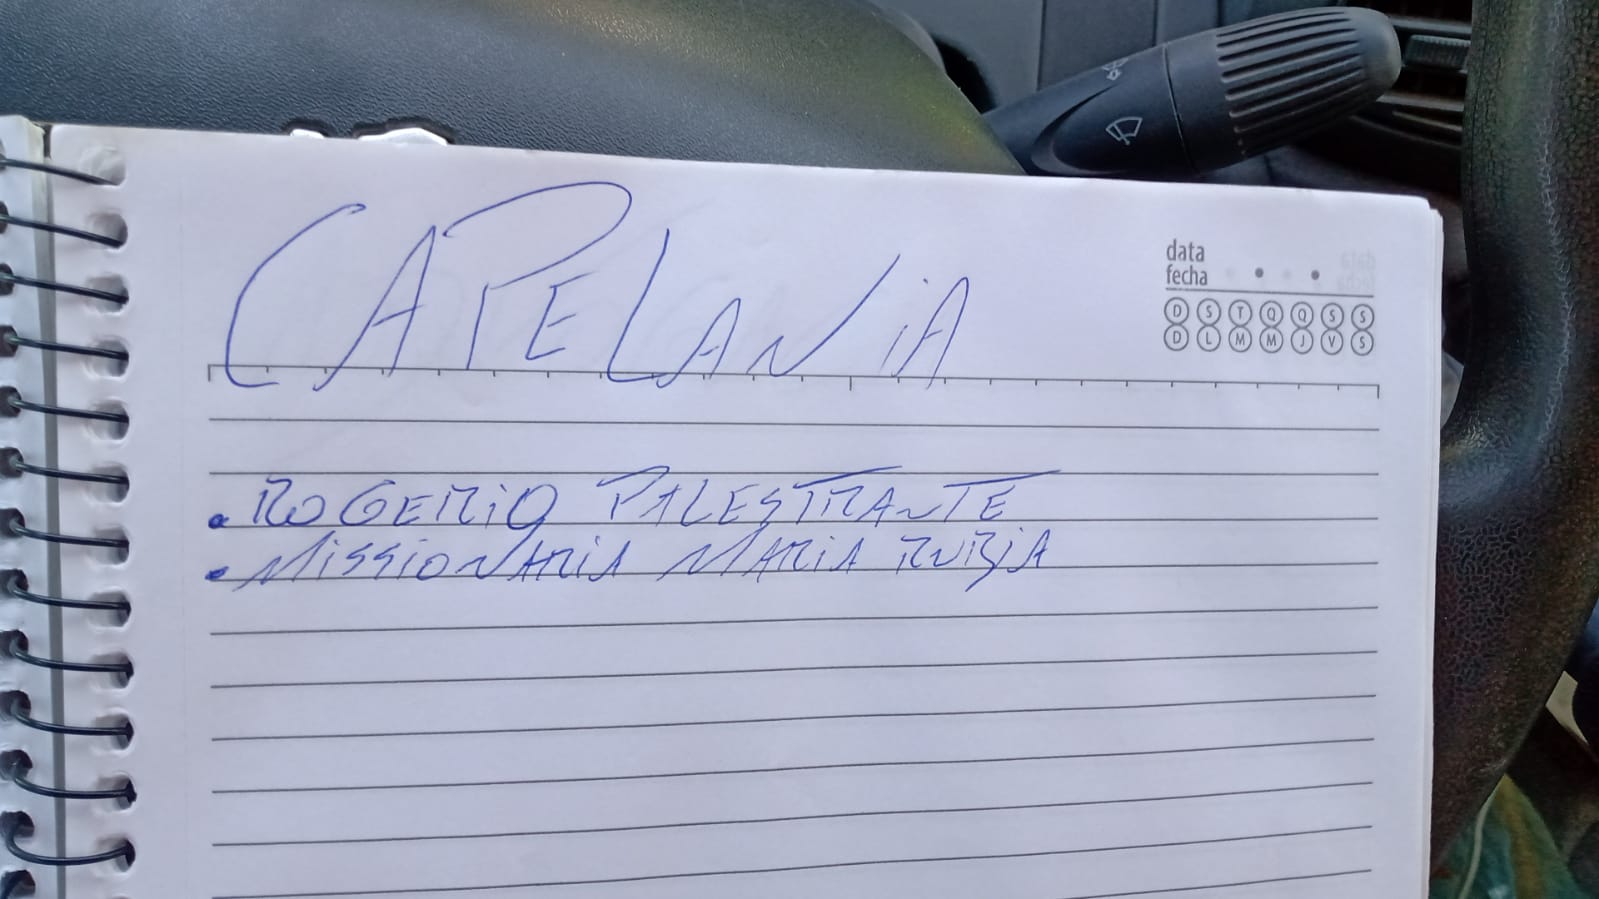 CAPELANiA
data
fecha
D S T Q Q S S
D L M M J V S
• ROGERiO PALESTRANTE
• MiSSiONARiA MARiA RUBiA